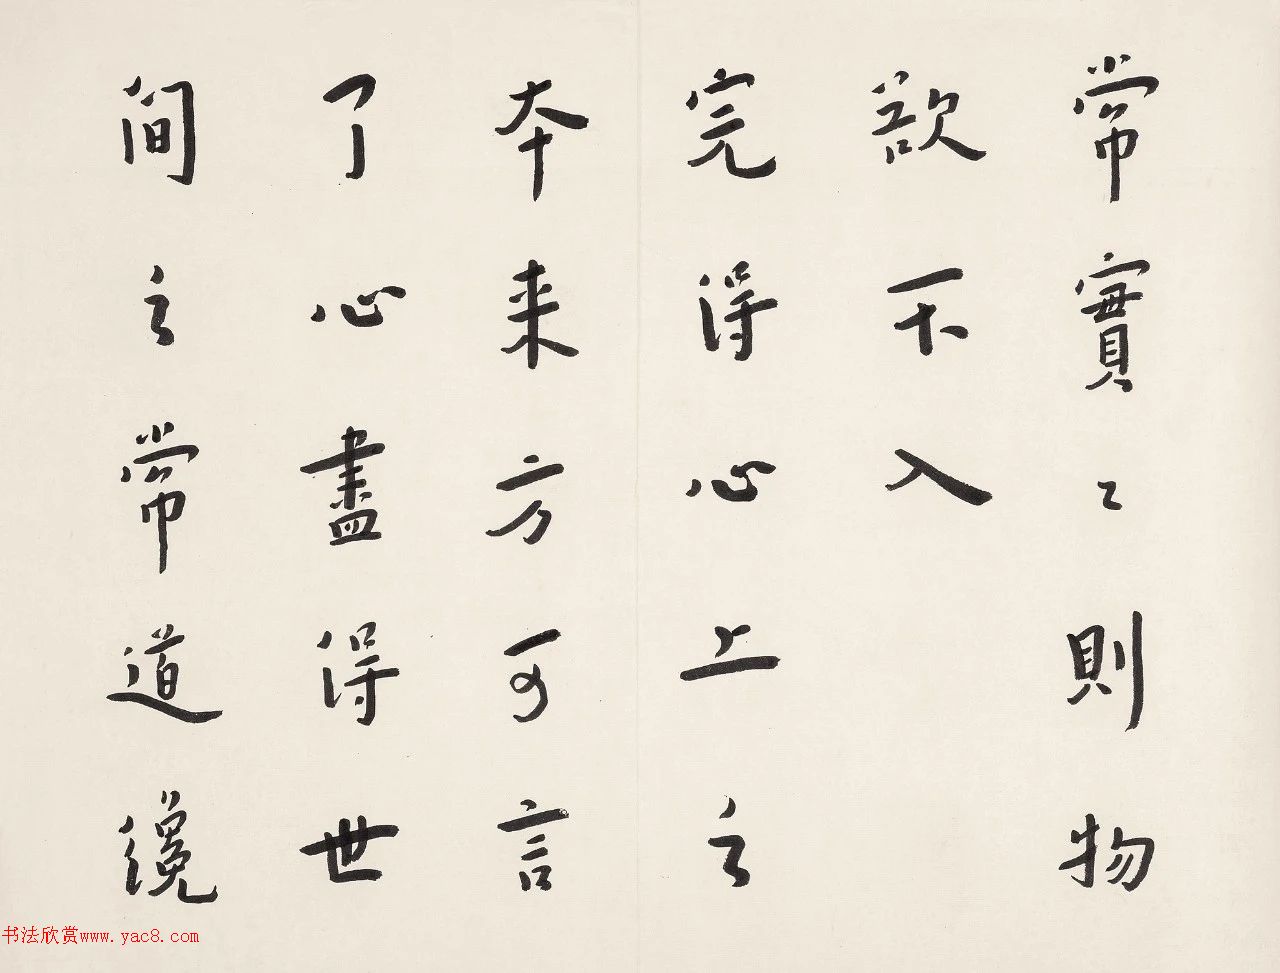 常實〻則物
欲不入
完得心上之
本来方可言
了心盡得世
间之常道纔
书法欣赏www.yac8.com